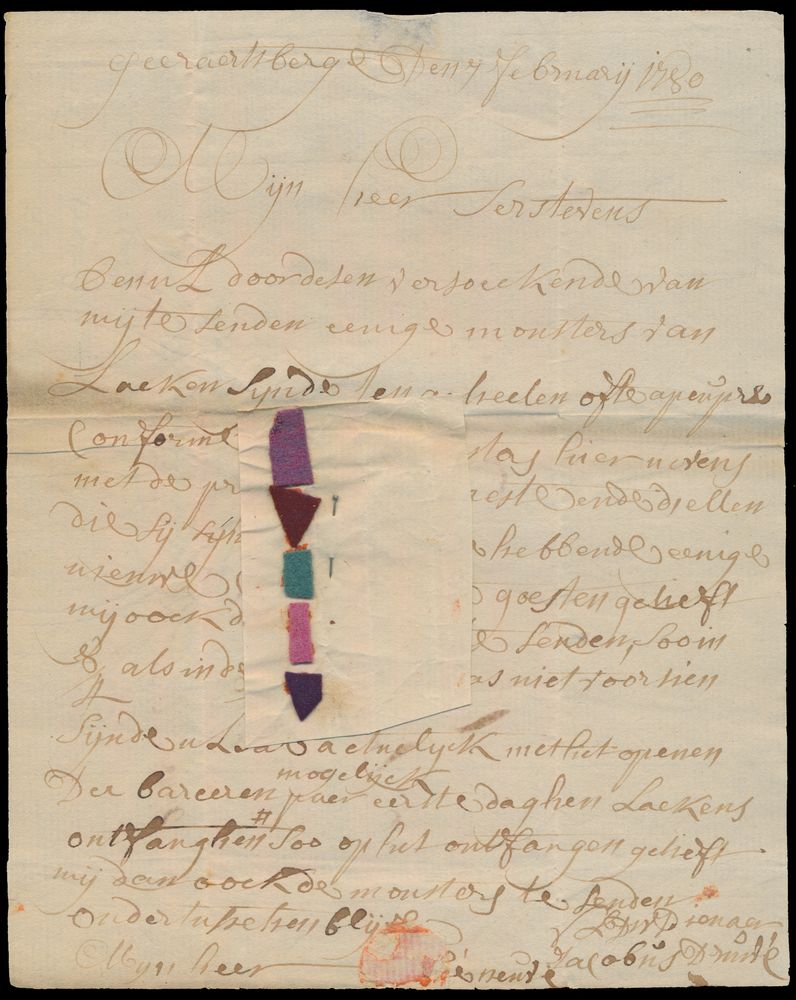 Geeraertsberge Den 7 februarij 1780
Mijn heer Serstevens
doordesen versoeckende van
mij te senden eenige monsters van
Laeken Sijnde heelen ofte apeupre
Conforme hier nevens
met de pr ende di ellen
die sij sijn hebbende eenige
nieuwe goesten gelieft
mij oock d te senden, soo in
als in de as niet voorsien
Sijnde actuelijck met het openen
Der bareeren mogelijck eerste daghen Laekens
ontfanghen # Soo op het ontfangen gelieft
mij dan oock de monsters te senden
ondertusschen blijve UEdw Dienaer
Mijn heer Jacobus Druwé